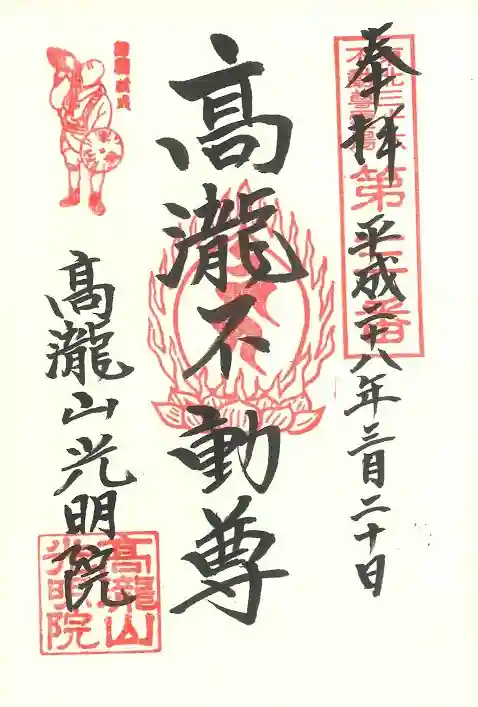 奉拝
平成二十八年三月二十日
高瀧不動尊
髙瀧山光明院
高龍山
光明院